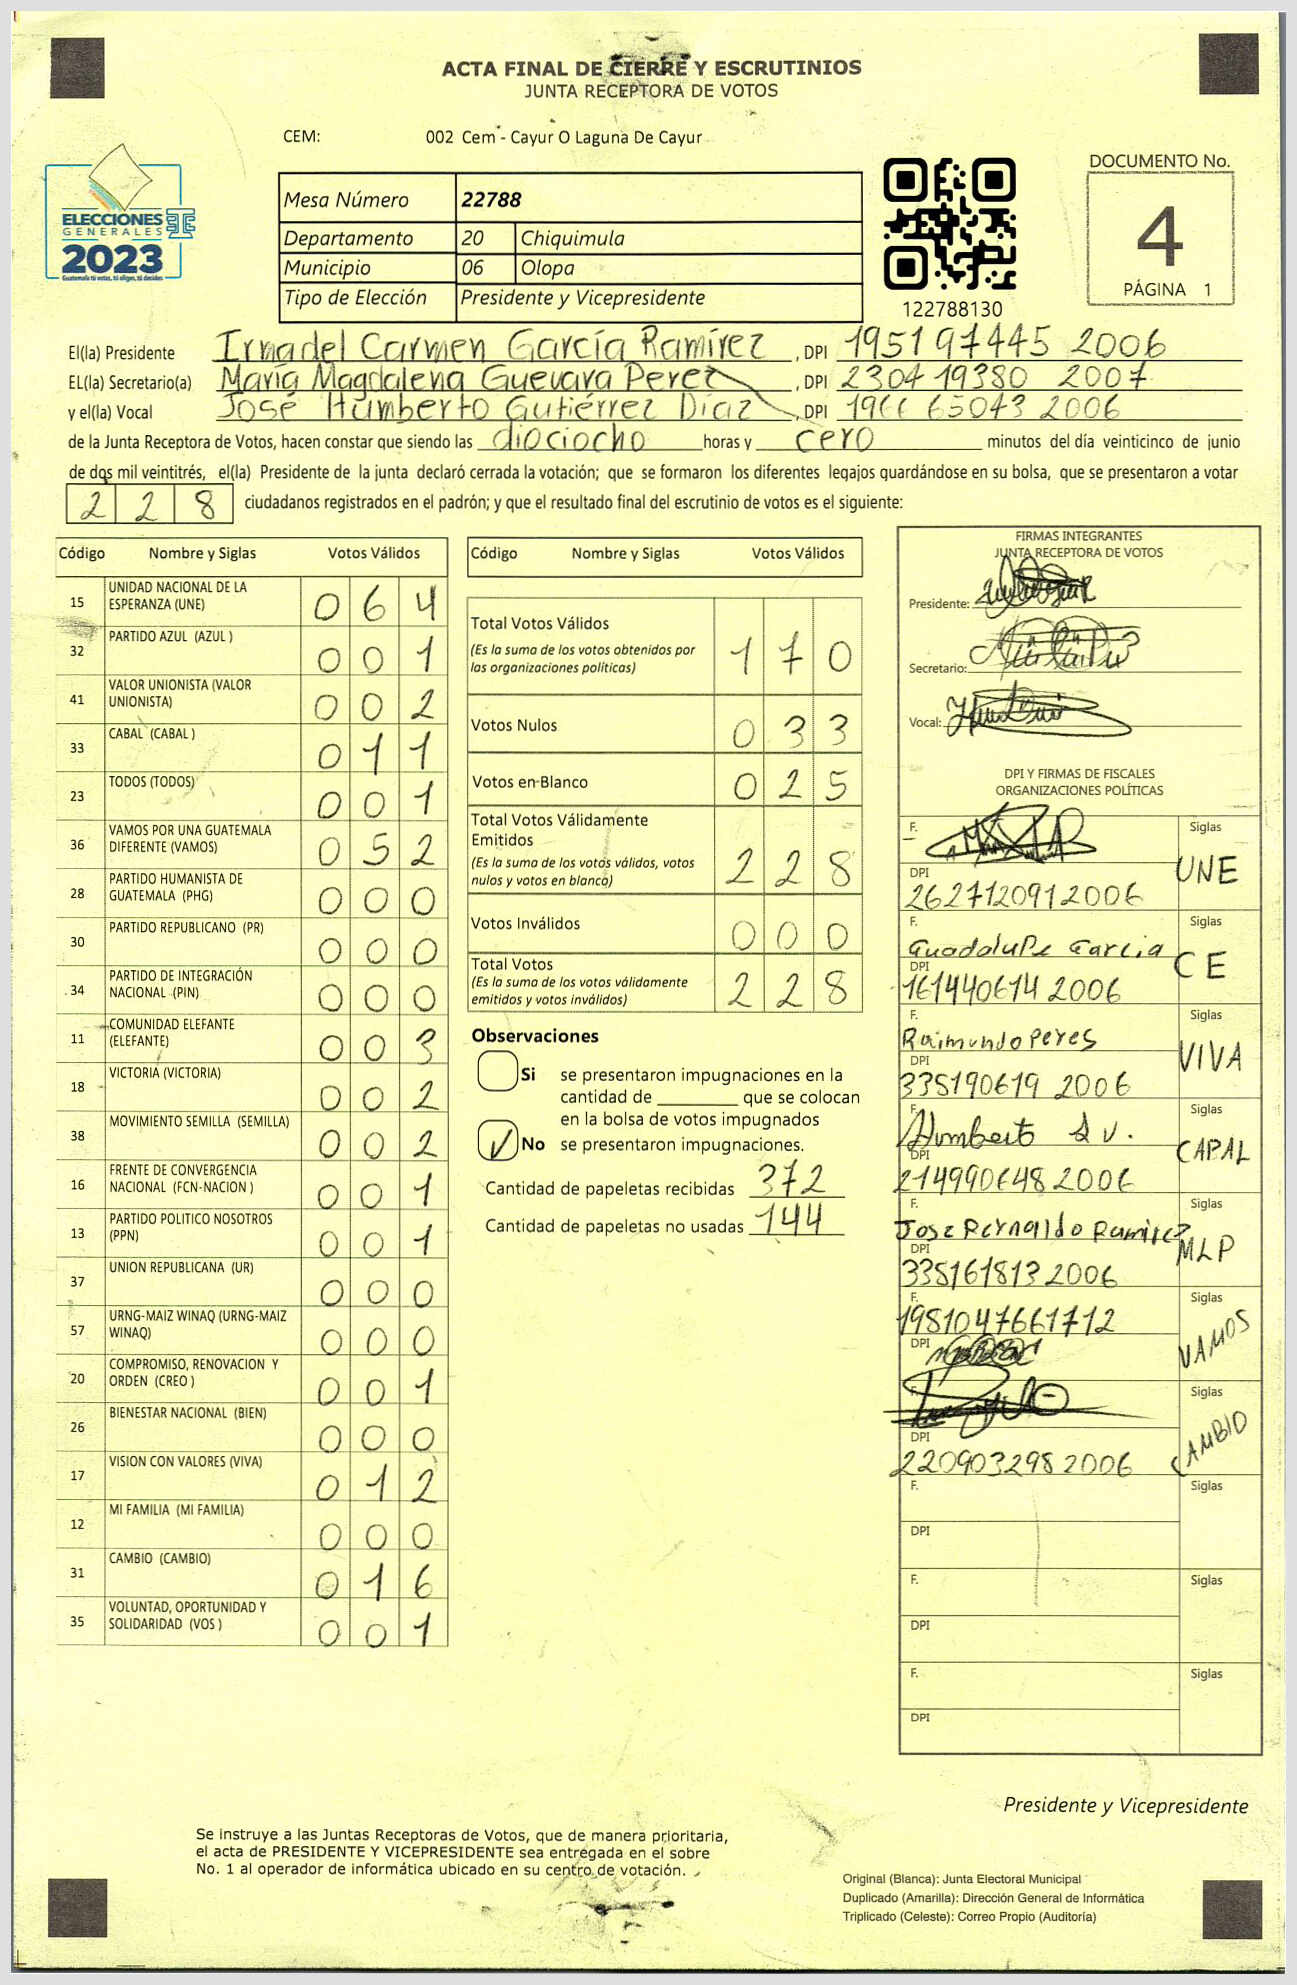 ACTA FINAL DE CIERRE Y ESCRUTINIOS
JUNTA RECEPTORA DE VOTOS
CEM: 002 Cem - Cayur O Laguna De Cayur
ELECCIONES
GENERALES
2023
Guatemala tú votas, tú eliges, tú decides
Mesa Número 22788
Departamento 20 Chiquimula
Municipio 06 Olopa
Tipo de Elección Presidente y Vicepresidente
122788130
DOCUMENTO No.
4
PÁGINA 1
El(la) Presidente Irma del Carmen García Ramírez , DPI 1951 97445 2006
EL(la) Secretario(a) María Magdalena Guevara Perez , DPI 2304 19380 2007
y el(la) Vocal José Humberto Gutiérrez Díaz , DPI 1966 65043 2006
de la Junta Receptora de Votos, hacen constar que siendo las diociocho horas y cero minutos del día veinticinco de junio
de dos mil veintitrés, el(la) Presidente de la junta declaró cerrada la votación; que se formaron los diferentes legajos guardándose en su bolsa, que se presentaron a votar
228 ciudadanos registrados en el padrón; y que el resultado final del escrutinio de votos es el siguiente:
Código Nombre y Siglas Votos Válidos
15 UNIDAD NACIONAL DE LA ESPERANZA (UNE) 064
32 PARTIDO AZUL (AZUL ) 001
41 VALOR UNIONISTA (VALOR UNIONISTA) 002
33 CABAL (CABAL ) 011
23 TODOS (TODOS) 001
36 VAMOS POR UNA GUATEMALA DIFERENTE (VAMOS) 052
28 PARTIDO HUMANISTA DE GUATEMALA (PHG) 000
30 PARTIDO REPUBLICANO (PR) 000
34 PARTIDO DE INTEGRACIÓN NACIONAL (PIN) 000
11 COMUNIDAD ELEFANTE (ELEFANTE) 003
18 VICTORIA (VICTORIA) 002
38 MOVIMIENTO SEMILLA (SEMILLA) 002
16 FRENTE DE CONVERGENCIA NACIONAL (FCN-NACION ) 001
13 PARTIDO POLITICO NOSOTROS (PPN) 001
37 UNION REPUBLICANA (UR) 000
57 URNG-MAIZ WINAQ (URNG-MAIZ WINAQ) 000
20 COMPROMISO, RENOVACION Y ORDEN (CREO ) 001
26 BIENESTAR NACIONAL (BIEN) 000
17 VISION CON VALORES (VIVA) 012
12 MI FAMILIA (MI FAMILIA) 000
31 CAMBIO (CAMBIO) 016
35 VOLUNTAD, OPORTUNIDAD Y SOLIDARIDAD (VOS ) 001
Código Nombre y Siglas Votos Válidos
Total Votos Válidos 170
(Es la suma de los votos obtenidos por
las organizaciones políticas)
Votos Nulos 033
Votos en Blanco 025
Total Votos Válidamente
Emitidos 228
(Es la suma de los votos válidos, votos
nulos y votos en blanco)
Votos Inválidos 000
Total Votos 228
(Es la suma de los votos válidamente
emitidos y votos inválidos)
Observaciones
Si se presentaron impugnaciones en la
cantidad de ________ que se colocan
en la bolsa de votos impugnados
No se presentaron impugnaciones.
Cantidad de papeletas recibidas 372
Cantidad de papeletas no usadas 144
FIRMAS INTEGRANTES
JUNTA RECEPTORA DE VOTOS
Presidente:
Secretario:
Vocal:
DPI Y FIRMAS DE FISCALES
ORGANIZACIONES POLÍTICAS
F. Siglas UNE
DPI
2627120912006
F. Guadalupe Garcia Siglas CE
DPI
161440614 2006
F. Raimundo Peres Siglas VIVA
DPI
335190619 2006
F. Humberto Siglas CAPAL
DPI
214990648 2006
F. Jose Reynaldo Ramirez Siglas MLP
DPI
335161813 2006
F. 1981047661712 Siglas VAMOS
DPI
F. Siglas CAMBIO
DPI
220903298 2006
F. Siglas
DPI
F. Siglas
DPI
F. Siglas
DPI
Presidente y Vicepresidente
Se instruye a las Juntas Receptoras de Votos, que de manera prioritaria,
el acta de PRESIDENTE Y VICEPRESIDENTE sea entregada en el sobre
No. 1 al operador de informática ubicado en su centro de votación.
Original (Blanca): Junta Electoral Municipal
Duplicado (Amarilla): Dirección General de Informática
Triplicado (Celeste): Correo Propio (Auditoría)